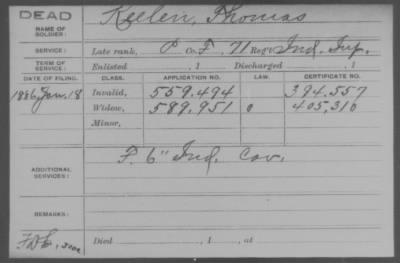 DEAD
NAME OF SOLDIER: Keelen, Thomas
SERVICE: Late rank, P Co. F, 71 Reg't Ind. Inf.
TERM OF SERVICE: Enlisted , 1 Discharged , 1
DATE OF FILING. CLASS. APPLICATION NO. LAW. CERTIFICATE NO.
1886, Jan. 18 Invalid, 559.494 394.557
Widow, 589.951 0 405,316
Minor,
ADDITIONAL SERVICES: F. 6" Ind. Cav.
REMARKS:
Died , 1 , at